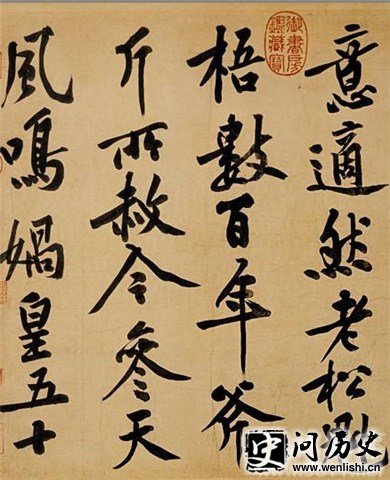 意適然老松魁
梧數百年斧
斤所赦今參天
風鳴媧皇五十
御書房鑑藏寶
史 问历史
www.wenlishi.cn